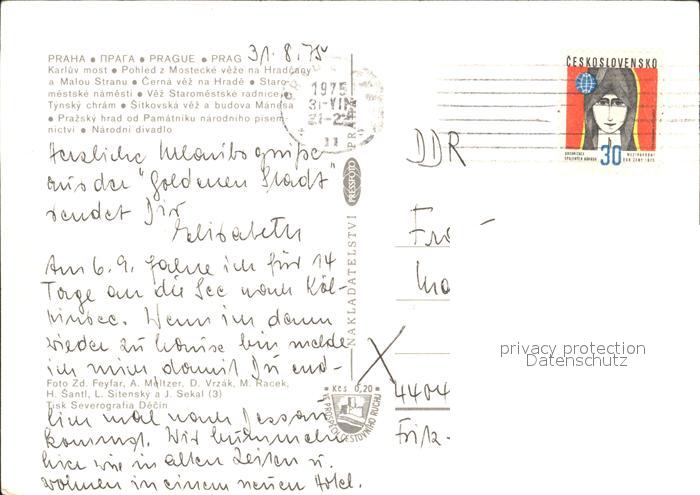 PRAHA • ПРАГА • PRAGUE • PRAG 31.8.75
Karlův most • Pohled z Mostecké věže na Hradčany
a Malou Stranu • Černá věž na Hradě • Staro-
městské náměstí • Věž Staroměstské radnice,
Týnský chrám • Šítkovská věž a budova Mánesa
• Pražský hrad od Památníku národního písem-
nictví • Národní divadlo
Herzliche Urlaubsgrüße
aus der "Goldenen Stadt"
sendet Dir
Elisabeth
Am 6.9. fahre ich für 14
Tage an die See nach Köl-
pinsee. Wenn ich dann
wieder zu Hause bin melde
ich mich damit Du end-
Foto Zd. Feyfar, A. Meltzer, D. Vrzák, M. Racek,
H. Šantl, L. Sitenský a J. Sekal (3)
Tisk Severografia Děčín
lich mal nach Dessau
kommst. Wir
hier wie in alten Zeiten u.
wohnen in einem neuen Hotel.
NAKLADATELSTVÍ PRESSFOTO PRAHA
1975
31.VIII
Kčs 0,20
VE PROSPĚCH CESTOVNÍHO RUCHU
ČESKOSLOVENSKO
ORGANIZACE SPOJENÝCH NÁRODŮ
30
MEZINÁRODNÍ ROK ŽENY 1975
DDR
Fr
4404
Fritz-
privacy protection
Datenschutz